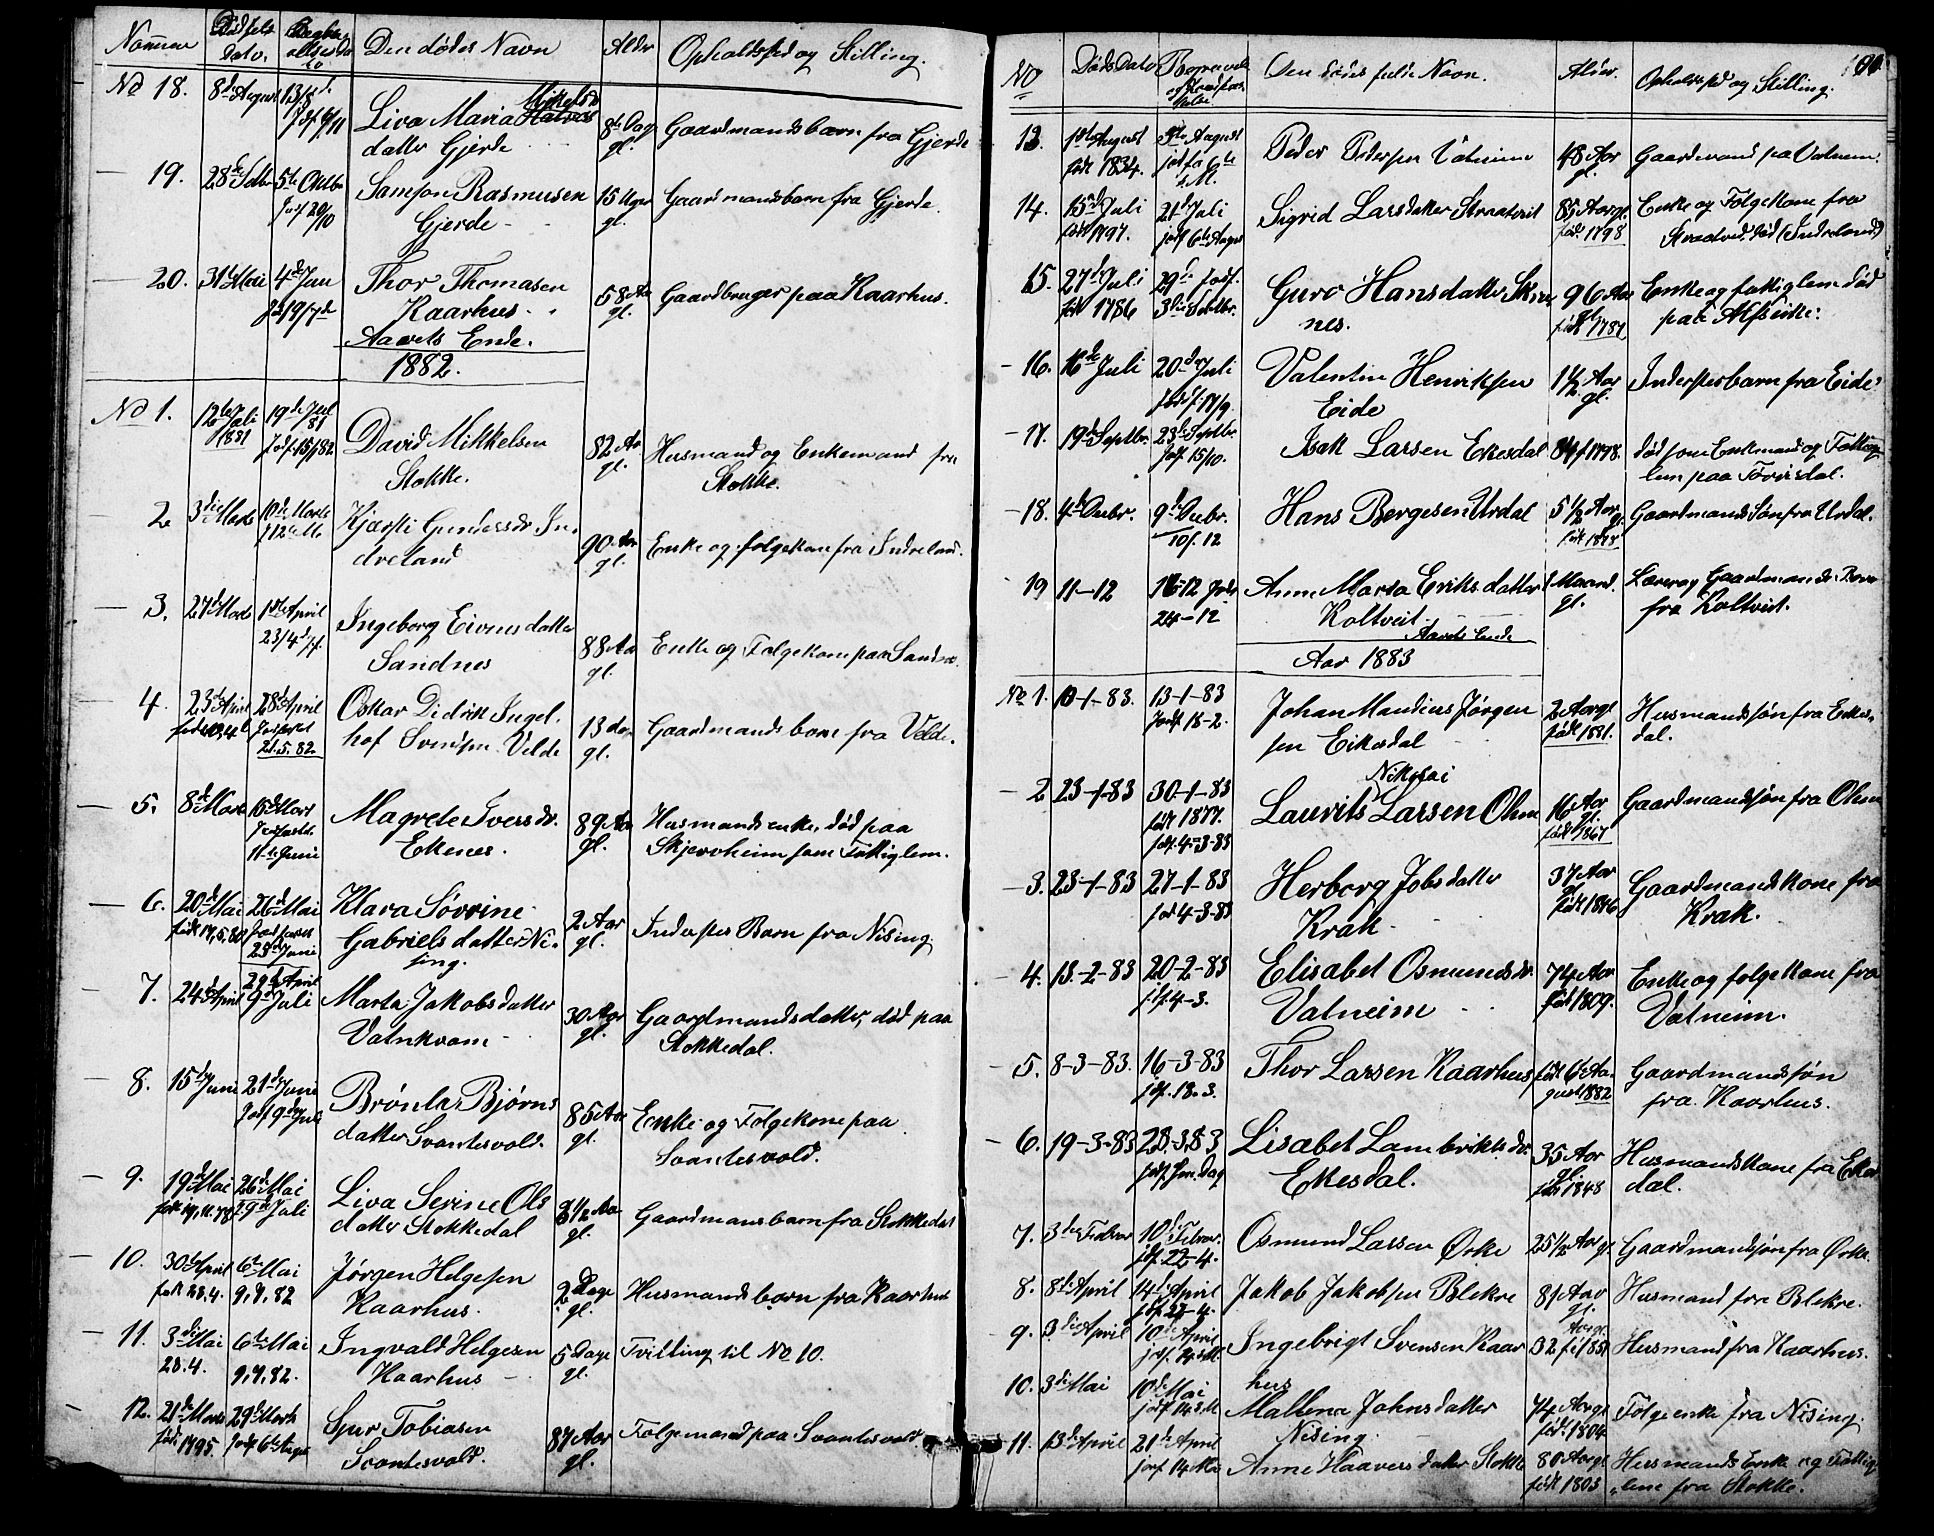 Nommer Dødsfals Dato. Den dødes Navn Alder Opholdssted og Stilling.
No 18. 8de August 13/8 Mikels
Jordf 6/11 Liva Maria Halvors 8te Dag Gaardmandsbarn fra Gjerde
datter Gjerde gl.
19. 28de Sptbr 5te Oktbr Samson Rasmusen 15 Uger Gaardmandsbarn fra Gjerde.
Jordf 29/10 Gjerde gl.
20. 31te Mai 4de Juni Thor Thomasen 58 Aar Gaardbruger paa Kaarhus.
Kaarhus. gl.
Aarets Ende.
1882.
No 1. 12te Juli 19de Juli
1881 81 David Mikkelsen 82 Aar Husmand og Enkemand fra
Stokke. gl. Stokke.
2. 3die Marts 10de Marts Kjersti Gundersdr In 90 Aar Enke og folgekone fra Indreland.
dreland gl.
3. 27de Marts 1ste April Ingeborg Eivinsdatter 88 Aar Enke og Folgekone paa Sandnes
23/4 Jf. Sandnes gl.
4. 23de April 28de April Oskar Didrik Ingel 13 dage Gaardmandsbarn fra Velde.
født 10.4 Jordfæstet hof Svendsen Velde gl.
21.5.82.
5. 8de Marts 15de Mart Magrete Iversdr. 89 Aar Husmandsenke, død paa
11te Juni Ekenes. gl. Skjersheim som Fattiglem.
6. 20de Mai 26de Mai Klara Søvrine 2 Aar Inderstes Barn fra Nising.
født 17.5.80 25de Juni Gabrielsdatter Ni- gl.
sing.
7. 24de April 29de April
9de Juli Marta Jakobsdatter 30 Aar Gaardmandsdatter, død paa
Vatnkvam gl. Stokkedal.
8. 15de Juni 21de Juni Brønla Bjørns 85 Aar Enke og Folgekone paa
Jordf 9de Juli datter Svantesvold. gl. Svantesvold.
9. 19de Mai 26de Mai Liva Serine Ols 3 1/2 Aar Gaardmansbarn fra Stokkedal
9de Juli datter Stokkedal gl.
10. 30te April 6te Mai Jørgen Helgesen 2 Dage Husmandsbarn fra Kaarhus
født 28.4. 9,7,82 Kaarhus. gl.
11. 3die Mai 6te Mai Ingvald Helgesen 5 Dage Tvilling til No 10.
28.4. 9,7,82. Kaarhus gl.
12. 21de Marts 29de Marts Sjur Tobiasen 87 Aar Folgemand paa Svantesvold
født 1795. Jordf 6te August Svantesvold. gl.
No Døds Dato Den dødes fulde Navn. Alder. Opholdssted og Stilling.
13. 1ste August 9de August Peder Pedersen Vatneim 48 Aar Gaardmand paa Vatneim.
født 1834. gl.
14. 15de Juli 21de Juli Sigrid Larsdatter Straatveit 85 Aar gl. Enke og Folgekone fra
født 1797. jordf 6te August født 1798 Straatveit, død (Indreland)
15. 27de Juli 29de Jordf. Guro Hansdatter Skjen 96 Aar Enke og fattiglem død
født 1786 3die Septbr. nes. født 1787 paa Alfsvike.
16. 16de Juli 20de Juli Valentin Henriksen 1 1/2 Aar Inderstesbarn fra Eide
Jordf. 17/9. Eide gl.
17. 19de Septbr. 23de Septbr. Isak Larsen Ekesdal 84 f 1798. død som Enkemand og Fattig
Jordf. 15/10. lem paa Tveitdal.
18. 4de Decbr. 9de Decbr. Hans Bergesen Urdal 5 1/2 Aar Gaardmandssøn fra Urdal.
10/12 gl.
19 11-12 16-12 Jordf Anne Marta Eriksdatter 1 Maaned Lærer og Gaardmands Barn
24-12 Koltveit. gl. fra Koltveit.
Aarets Ende
Aar 1883
No 1. 10-1-83. 13-1-83 Johan Mandius Jørgen 2 Aar gl Husmandssøn fra Eikes-
Jordf 18-2. sen Eikesdal født 1881. dal.
2 23-1-83 30-1-83 Nikolai
Laurits Larsen Ohm 16 Aar Gaardmandssøn fra Ohm
født 1877. gl.
jordf. 4-3-83 født 1867
3. 23-1-83 27-1-83 Herborg Jobsdatter 37 Aar Gaardmandskone fra
jord 4-3-83 Krak. født 1846 Krak.
4. 13-2-83 20-2-83 Elisabet Osmundsdr. 74 Aar Enke og folgekone fra
jdf. 4-3. Vatneim født 1809. Vatneim.
5. 8-3-83. 16-3-83 Thor Larsen Kaarhus født 6te Au- Gaardmandssøn
jdf. 18.3. gust 1882 fra Kaarhus.
6. 19-3-83 28.3.83 Lisabet Lambriktsdr. 35 Aar Husmandskone fra Ekes
jdf. sam. Dag Ekesdal. født 1848 dal.
7. 3die Februar 10de Februar. Osmund Larsen Ørke 25 1/2 Aar gl Gaardmandssøn fra Ørke.
jdf. 22-4.
8. 8de April 14de April Jakob Jakobsen Blekre 81 Aar Husmand fra Blekre.
jdf. 22-4. gl.
9. 3die April 10de April Ingebrigt Svensen Kaar 32 f 1851 Husmand fra Kaarhus.
jordf. 14de Mai hus
10. 3die Mai 10de Mai Mallena Johnsdatter 79 Aar gl Folgeenke fra Nising.
jordf 14 M Nising. født 1804.
11. 13de April 21de April Anne Haaversdatter Stokke 80 Aar gl Husmands Enke og Fattig-
jorf. 14 Mai født 1803 lem fra Stokke.